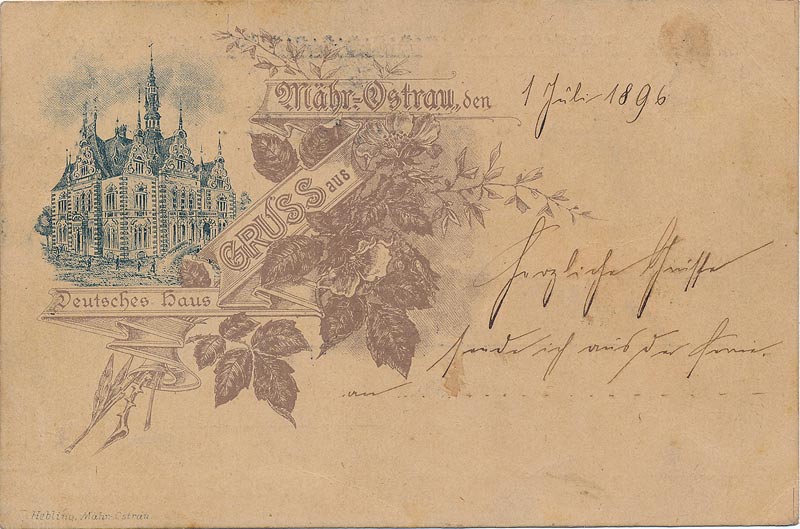 Mähr-Ostrau, den 1 Juli 1896
GRUSS aus
Deutsches Haus
Herzliche Grüsse
sende ich aus der
an
Hebling, Mähr-Ostrau